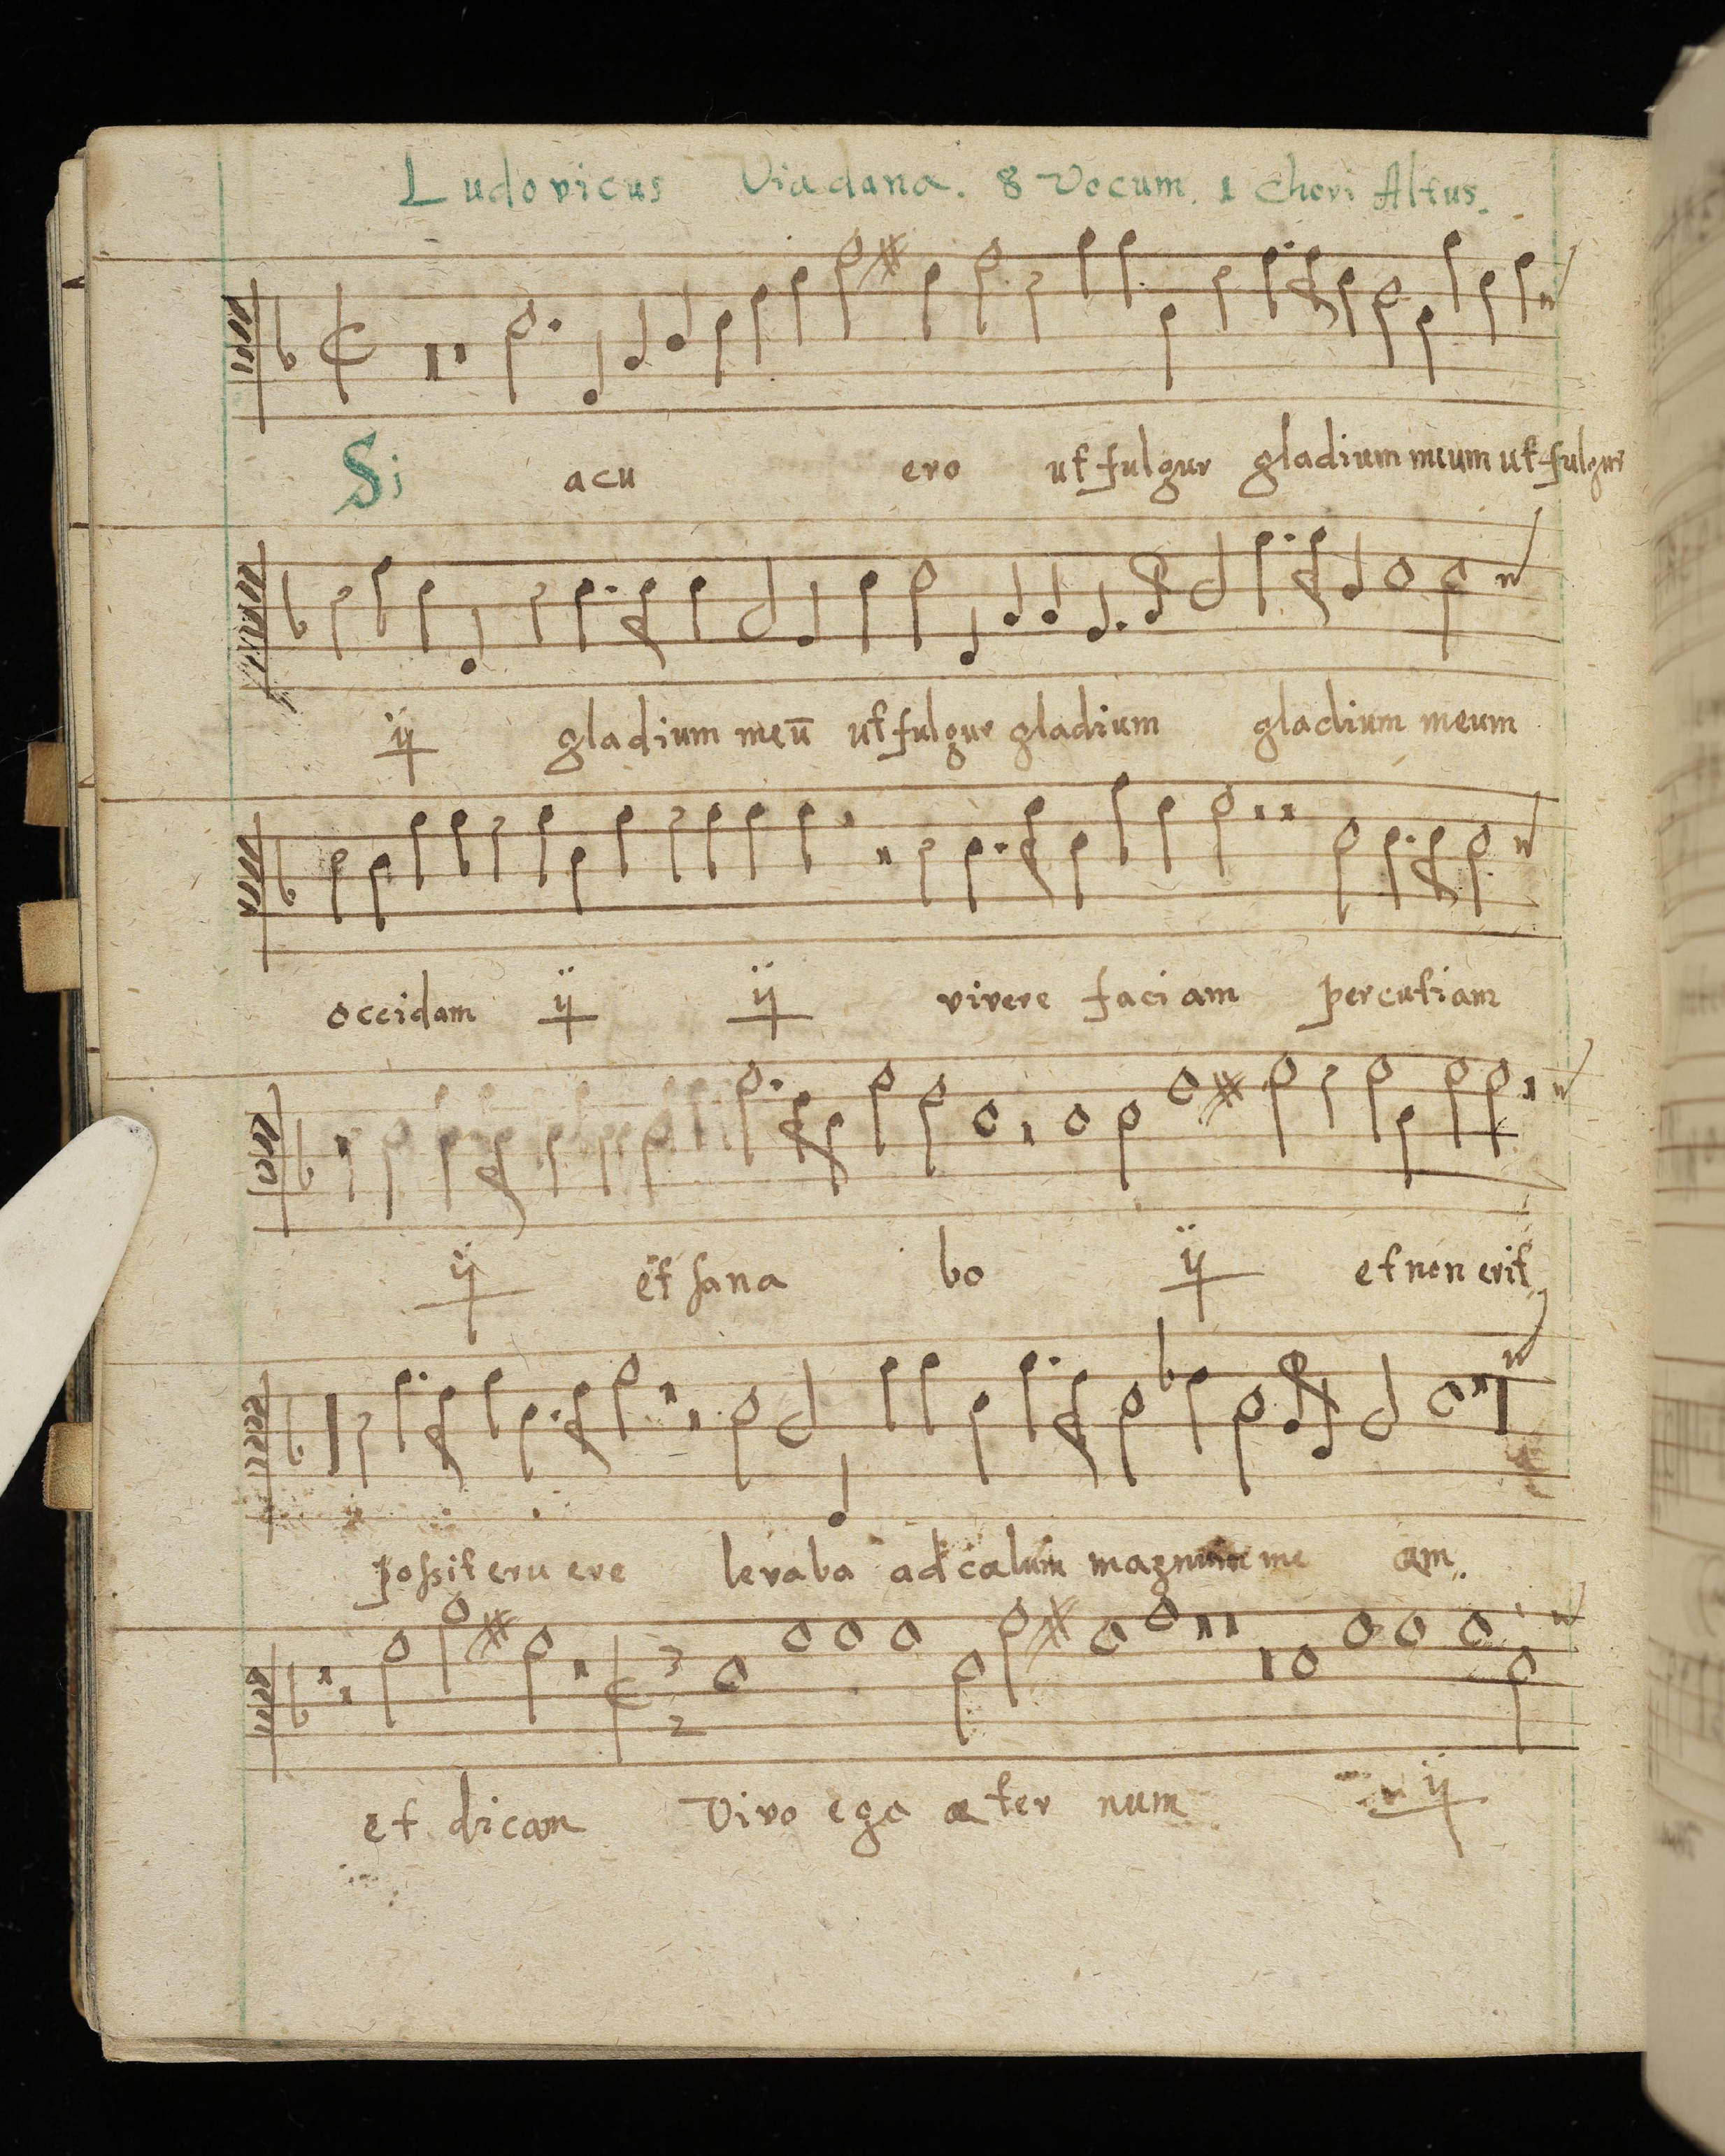 Ludovicus Viadana. 8 Vocum. 1 Chori Altus.
Si acu ero ut fulgur gladium meum ut fulgur
ij gladium meū ut fulgur gladium gladium meum
occidam ij ij vivere faciam percutiam
ij et sana bo ij et non erit
possit eru ere levaba ad cælum magnum me am
3
2
et dicam Vivo ego æ ter num ij